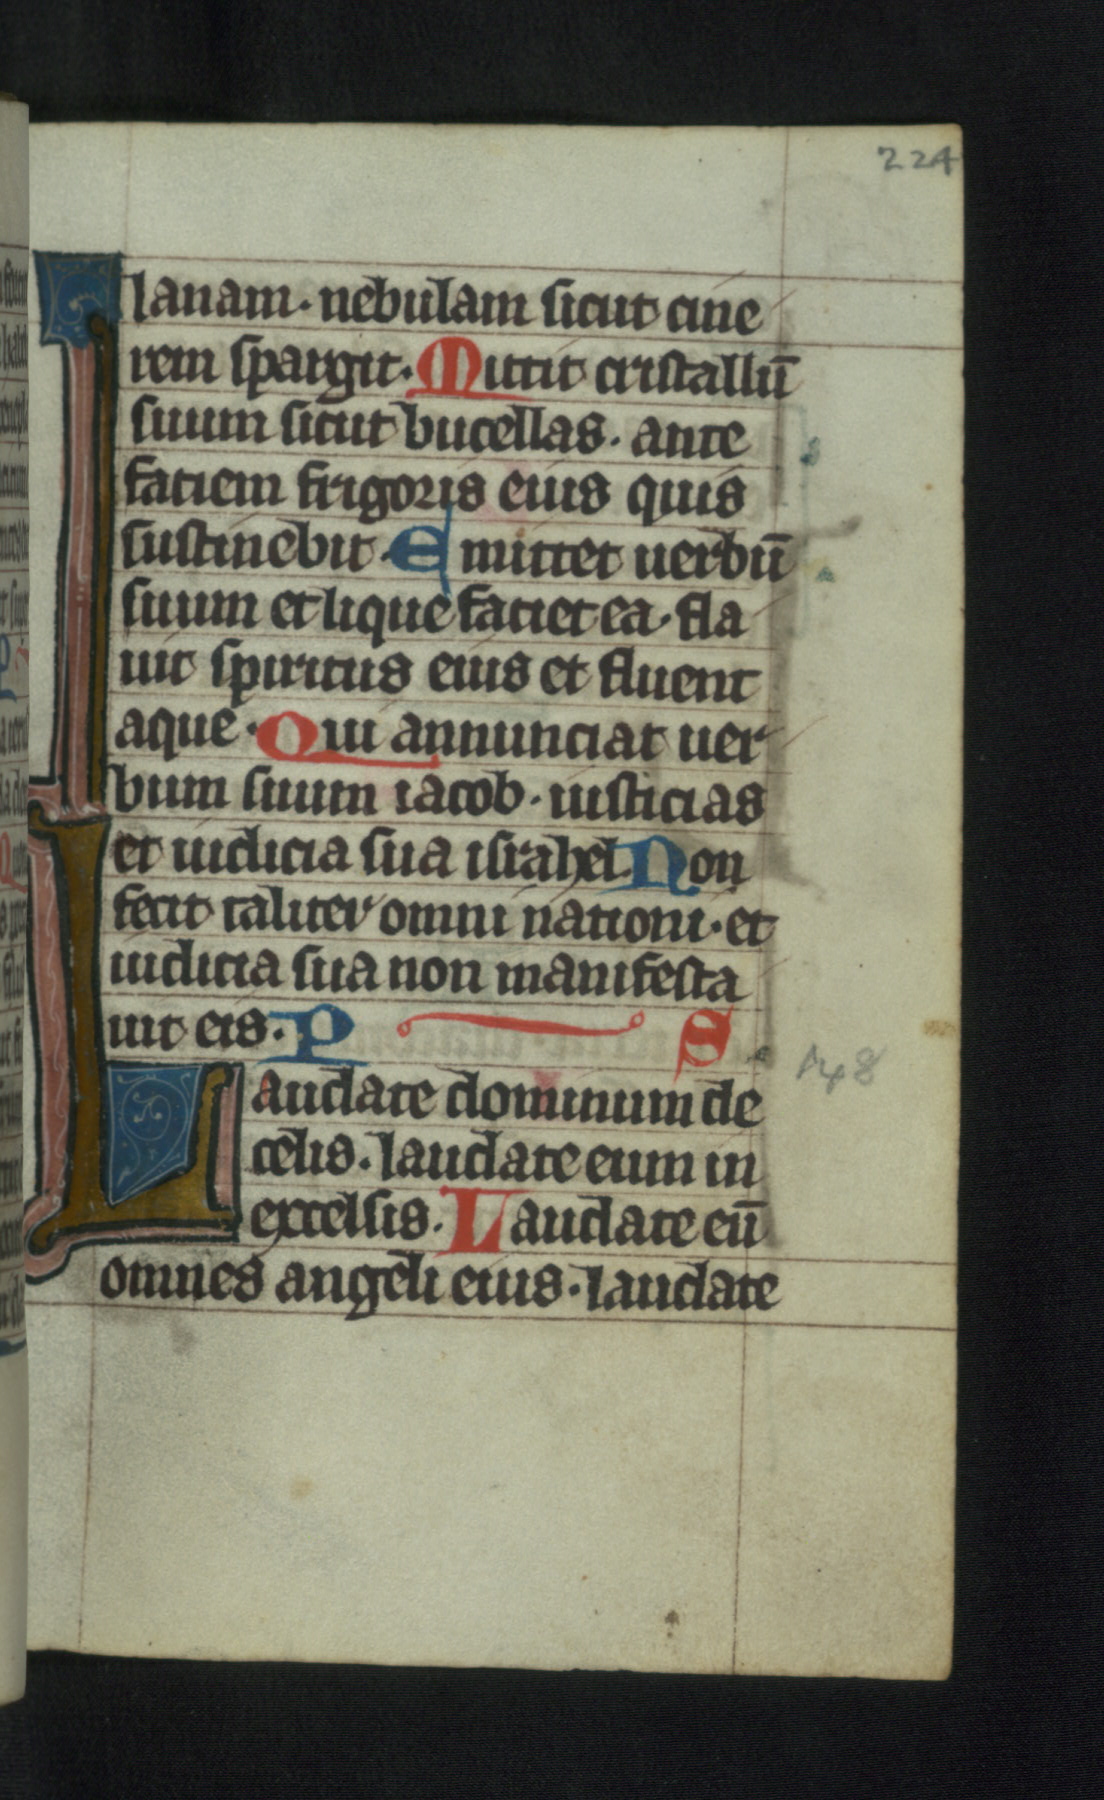 224
lanam · nebulam sicut cine
rem spargit · Mittit cristallū
suum sicut bucellas · ante
faciem frigoris eius quis
sustinebit · Emittet uerbū
suum et lique faciet ea · fla
uit spiritus eius et fluent
aque · Qui annunciat uer
bum suum iacob · iusticias
et iudicia sua israhel · Non
fecit taliter omni nationi · et
iudicia sua non manifesta
uit eis · P S
148
Laudate dominum de
celis · laudate eum in
excelsis · Laudate eū
omnes angeli eius · laudate